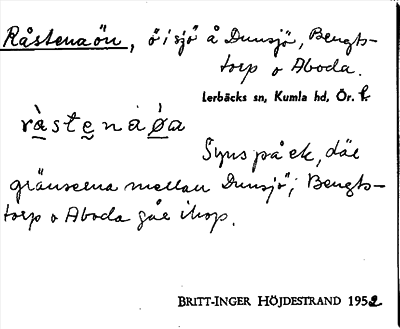 Råstenaön, ö i sjö å Dunsjö, Bengts-
torp o Aboda.
Lerbäcks sn, Kumla hd, Ör. l.
Syns på ek, där
gränserna mellan Dunsjö, Bengts-
torp o Aboda går ihop.
BRITT-INGER HÖJDESTRAND 1952